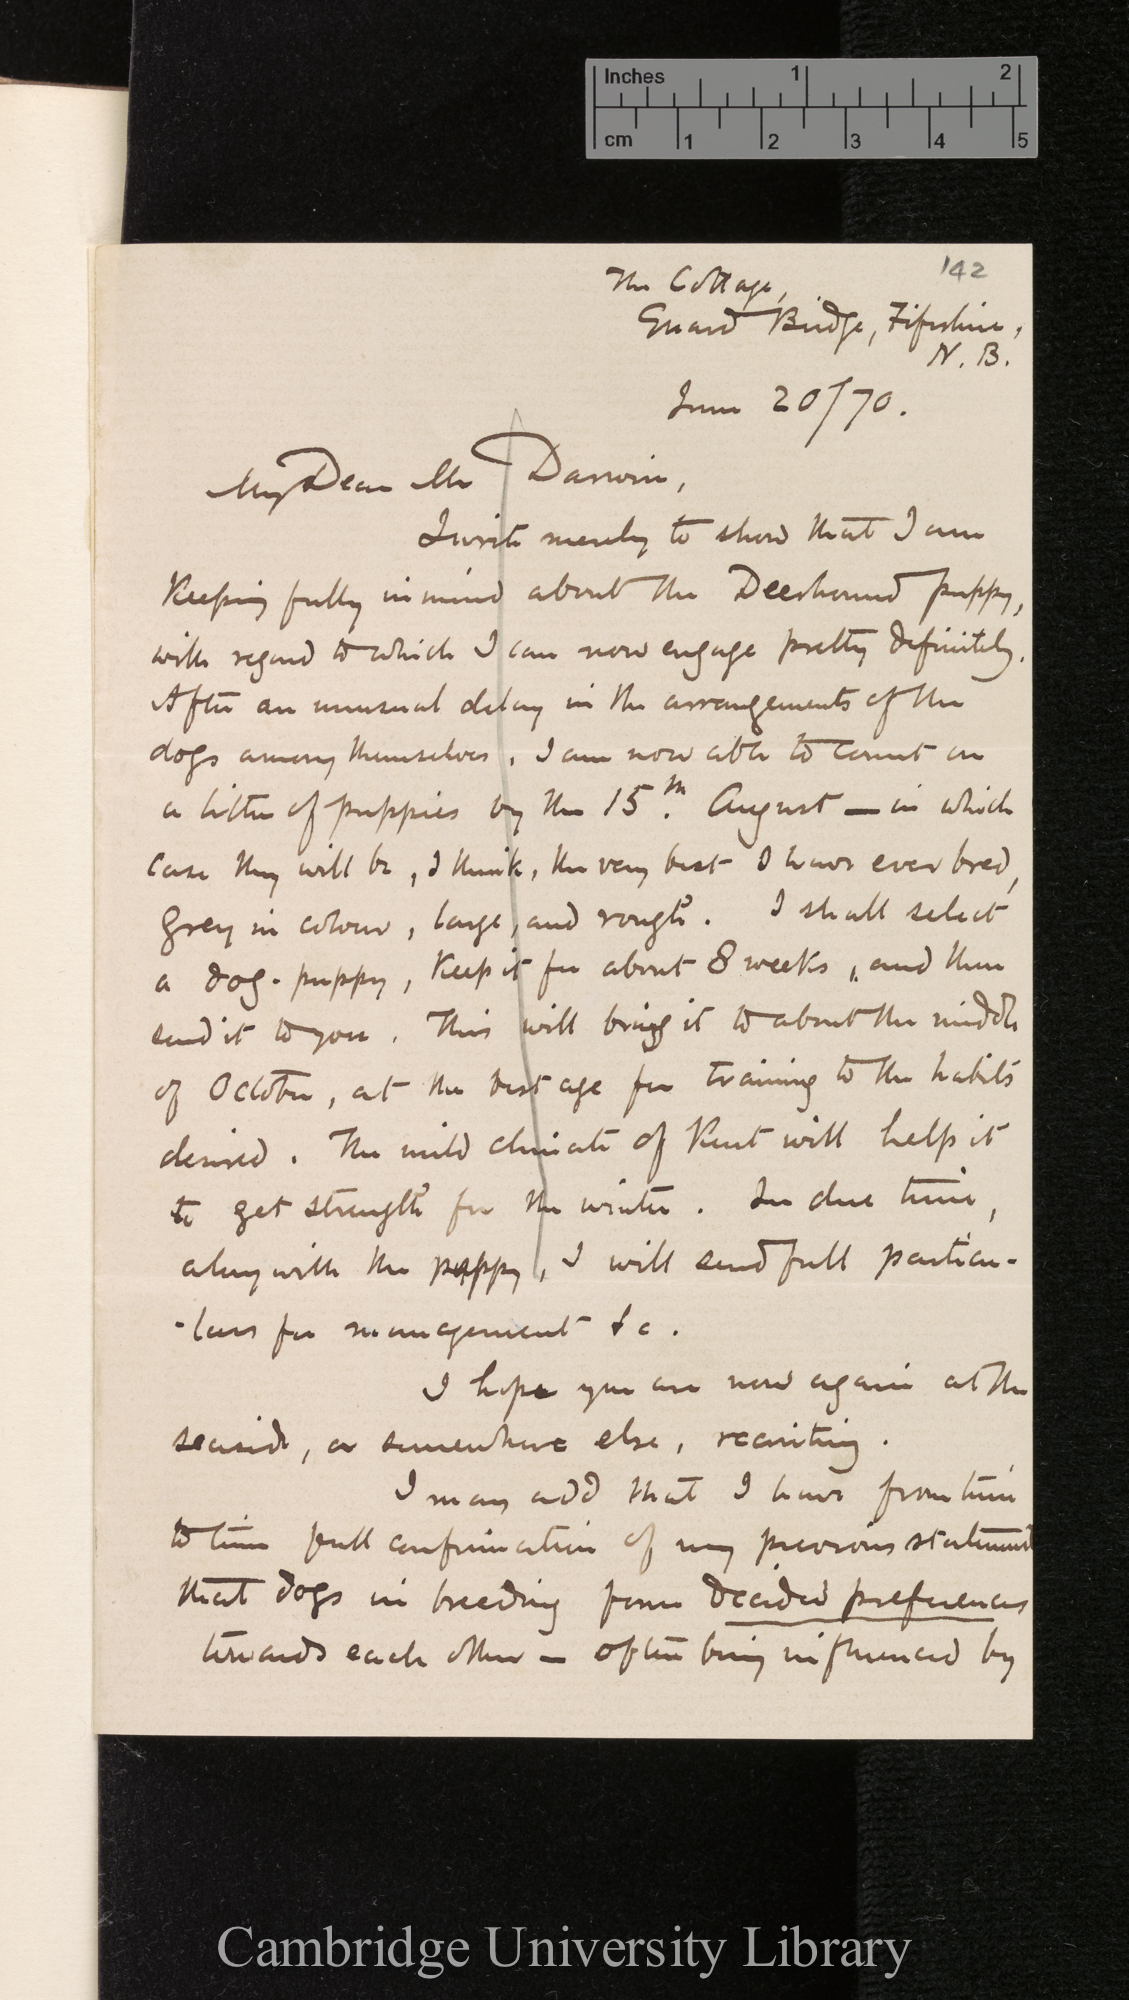 Inches 1 2
cm 1 2 3 4 5
142
The Cottage,
Guard Bridge, Fifeshire,
N. B.
June 20/70.
My Dear Mr Darwin,
I write merely to show that I am
keeping fully in mind about the Deerhound puppy,
with regard to which I can now engage pretty definitely.
After an unusual delay in the arrangements of the
dogs among themselves, I am now able to count on
a litter of puppies by the 15th. August — in which
case they will be, I think, the very best I have ever bred,
grey in colour, large, and rough. I shall select
a dog-puppy, keep it for about 8 weeks, and then
send it to you. This will bring it to about the middle
of October, at the best age for training to the habits
desired. The mild climate of Kent will help it
to get strength for the winter. In due time,
along with the puppy, I will send full particu-
-lars for management &c.
I hope you are now again at the
seaside, or somewhere else, recruiting.
I may add that I have from time
to time full confirmation of my previous statement
that dogs in breeding form decided preferences
towards each other — often being influenced by
Cambridge University Library